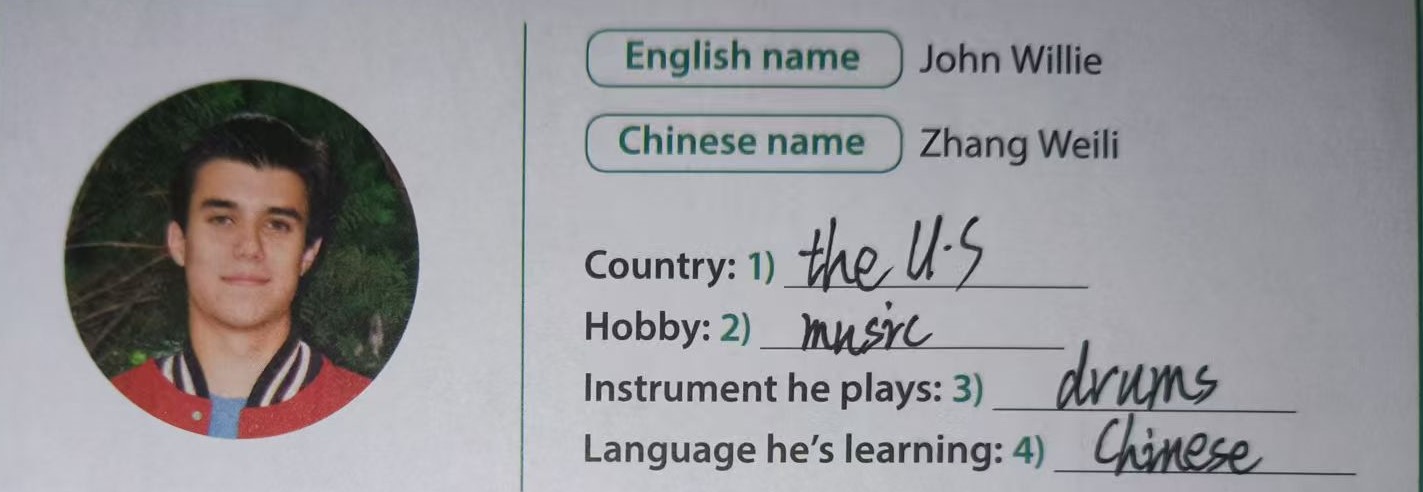 English name John Willie
Chinese name Zhang Weili
Country: 1) the U.S
Hobby: 2) music
Instrument he plays: 3) drums
Language he's learning: 4) Chinese